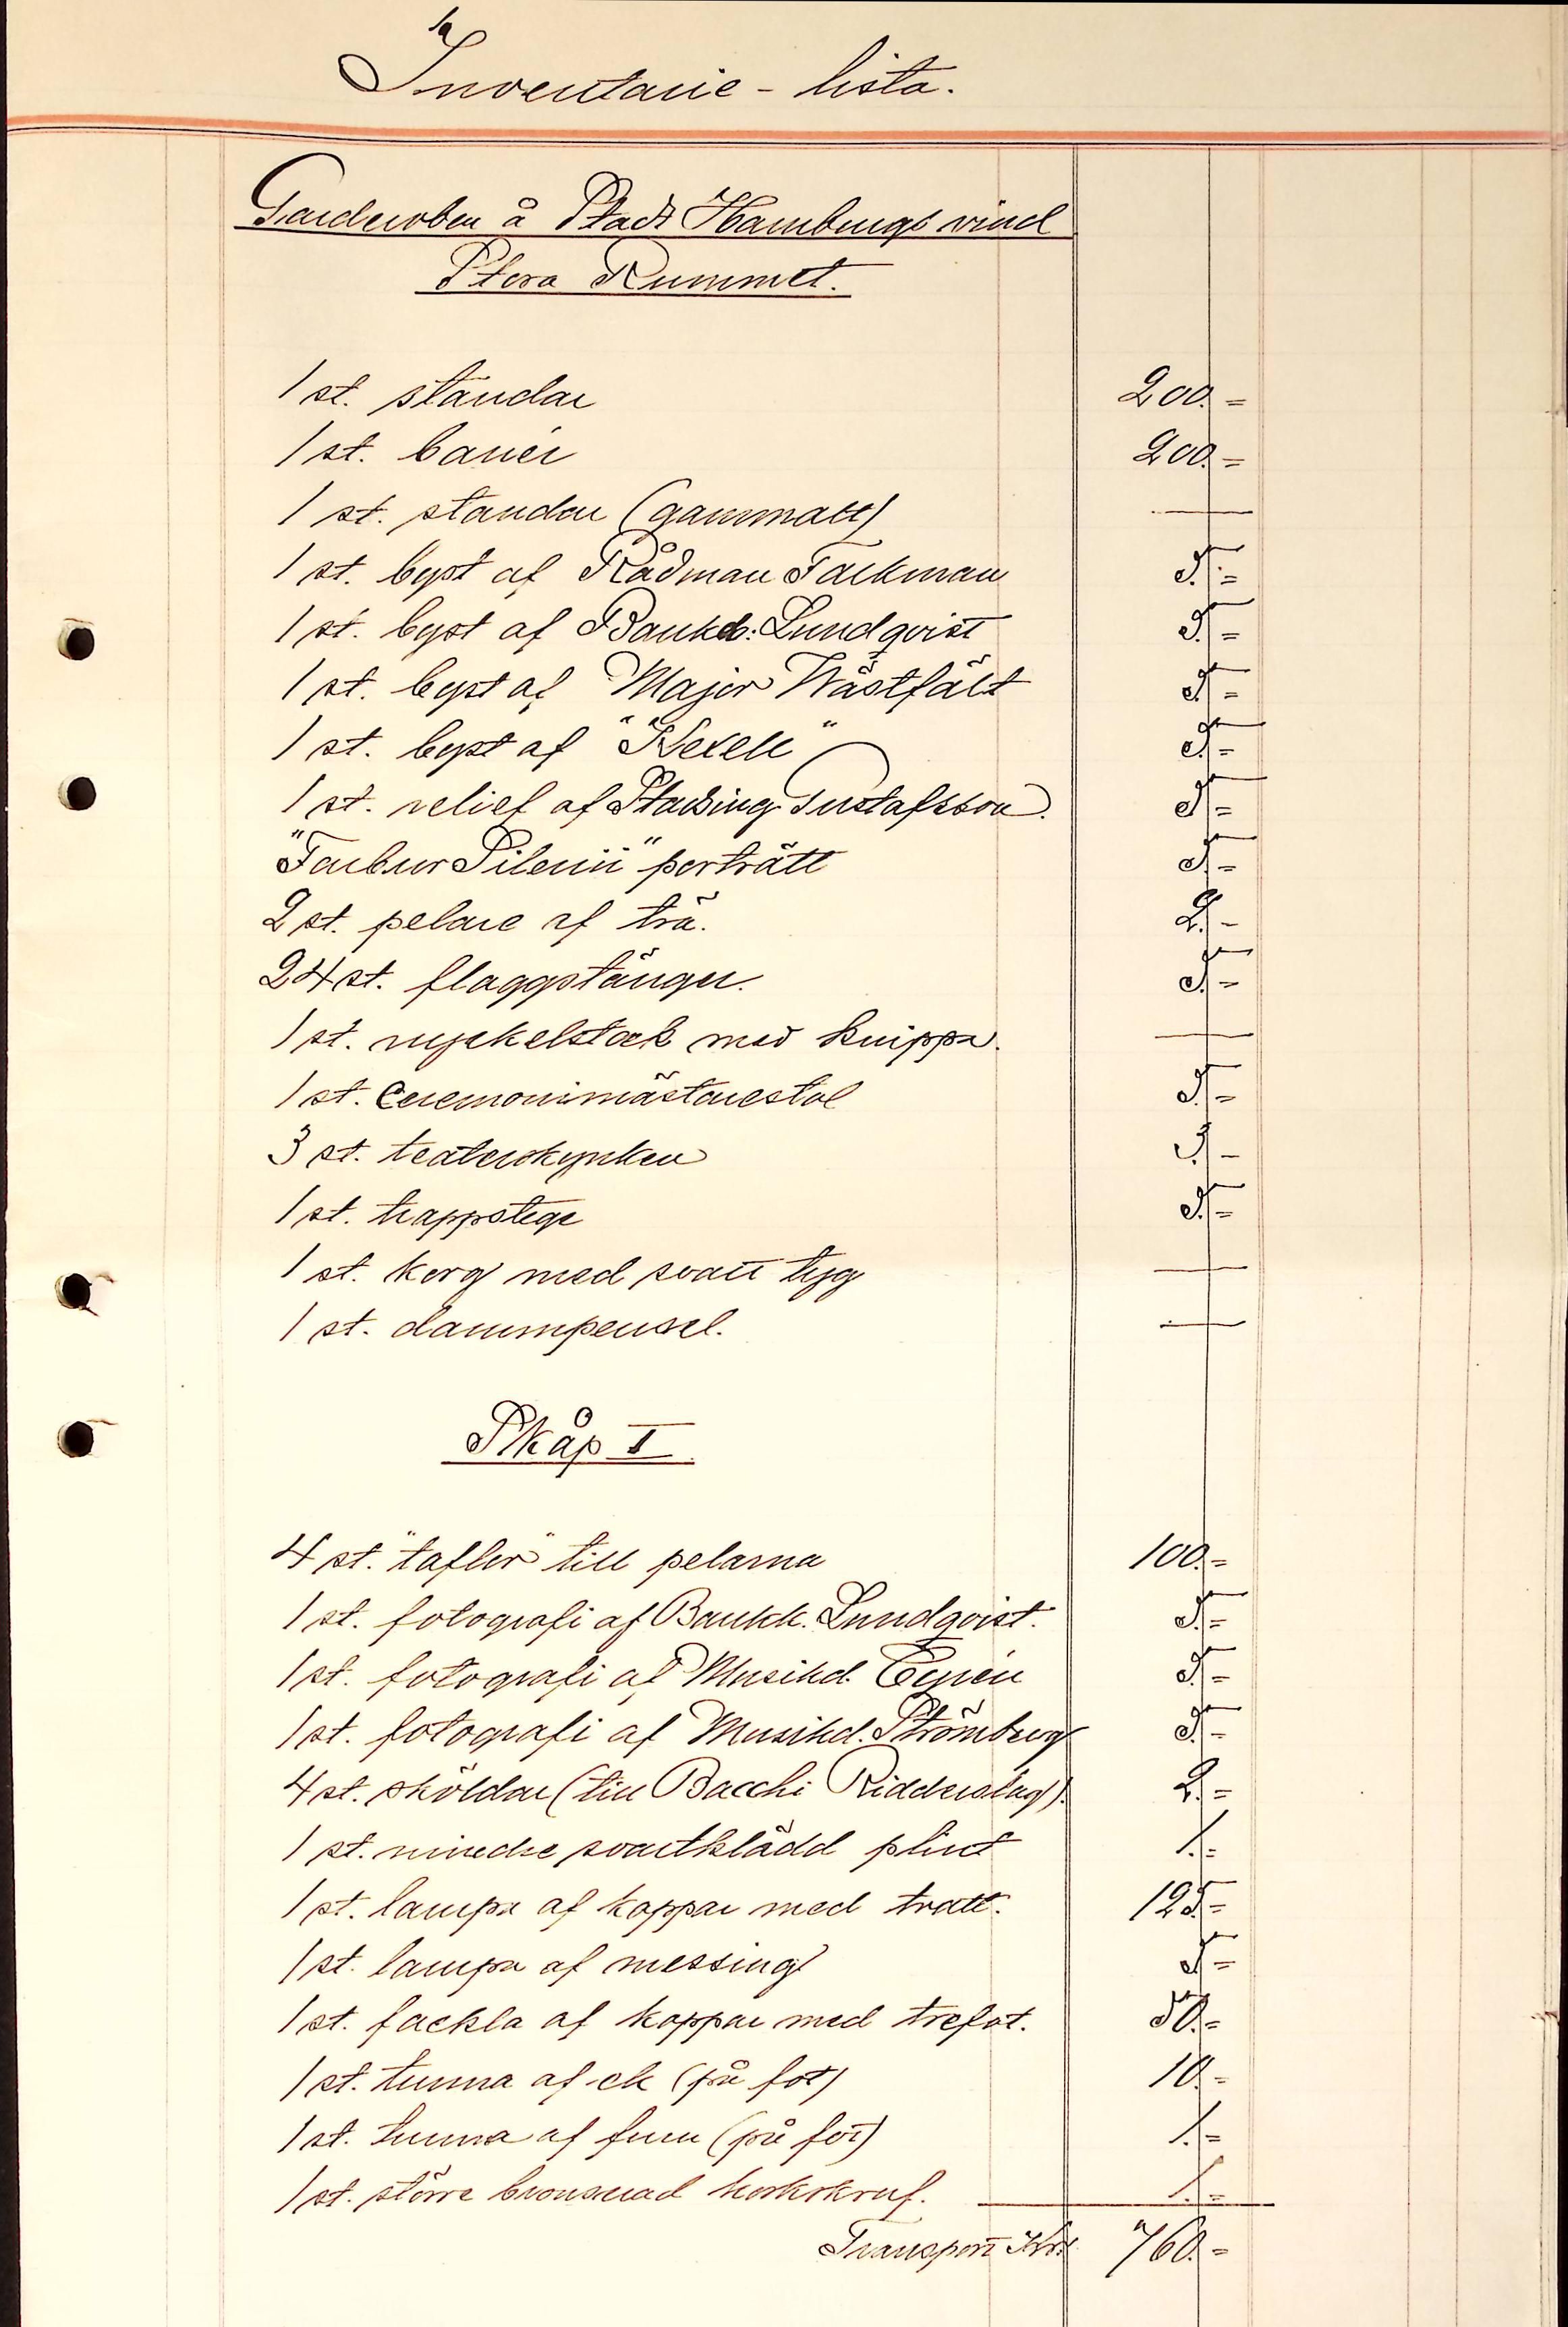 Inventarie-lista.
Garderoben å Stadt Hamburgs vind
Stora Rummet.
1 st. standar 200.-
1 st. banér 200.-
1 st. standar (gammalt) —
1 st. byst af Rådman Falkman 5.-
1 st. byst af Bankd: Lundqvist 5.-
1 st. byst af Major Wästfält 5.-
1 st. byst af "Kexell" 5.-
1 st. relief af Stadsing. Gustafsson. 5.-
"Farbror Pilenii" porträtt 5.-
2 st. pelare af trä. 2.-
24 st. flaggstänger. 5.-
1 st. nyckelstock med knippa. —
1 st. Ceremonimästarestol 5.-
3 st. teaterskynken 3.-
1 st. trappstege 5.-
1 st. korg med svart tyg —
1 st. dammpensel. —
Skåp I.
4 st. "taflor" till pelarna 100.-
1 st. fotografi af Bankk. Lundqvist. 5.-
1 st. fotografi af Musikd. 5.-
1 st. fotografi af Musikd. Strömberg 5.-
4 st. sköldar (till Bacchi Ridderslag). 2.-
1 st. mindre svartklädd plint 1.-
1 st. lampa af koppar med tratt. 125.-
1 st. lampa af messing 5.-
1 st. fackla af koppar med trefot. 50.-
1 st. tunna af ek (på fot) 10.-
1 st. tunna af furu (på fot) 1.-
1 st. större bronserad korkskruf. 1.-
Transport Kr. 760.-